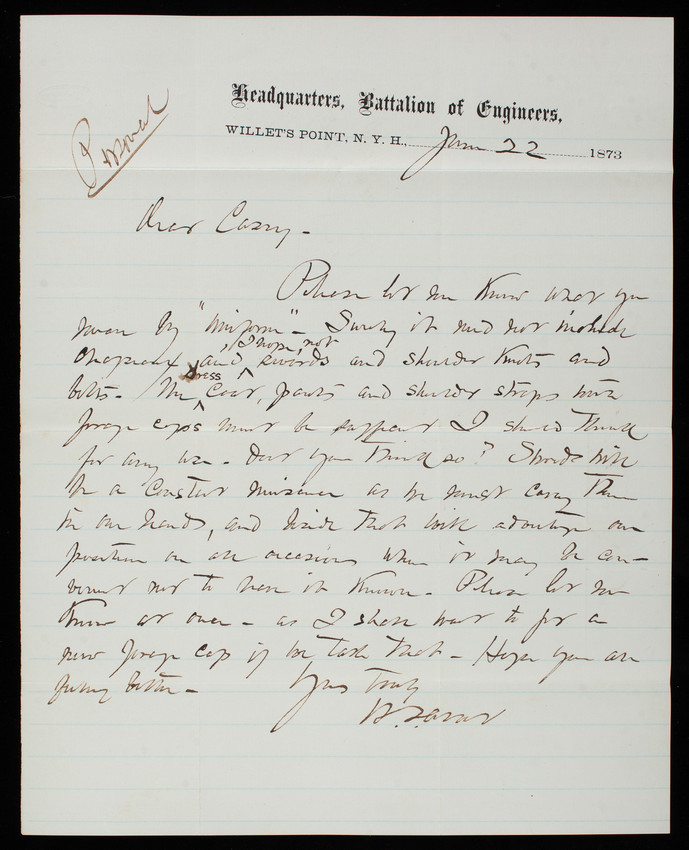 Headquarters, Battalion of Engineers,
WILLET'S POINT, N. Y. H., Jan 22 1873
Personal
Dear Casey -
Please let me know what you
mean by "uniform" - Surely it need not include
I hope, not
chapeaux and swords and shoulder knots and
dress
belts - The coat, pants and shoulder straps with
forage caps must be sufficient I should think
for any use - Dont you think so? Swords will
be a constant nuisance as we must carry them
in our hands, and beside that will advertize our
position on all occasions when it may be con-
venient not to have it known - Please let me
know at once - as I shall want to get a
new forage cap if we take that - Hope you are
feeling better -
Yours truly